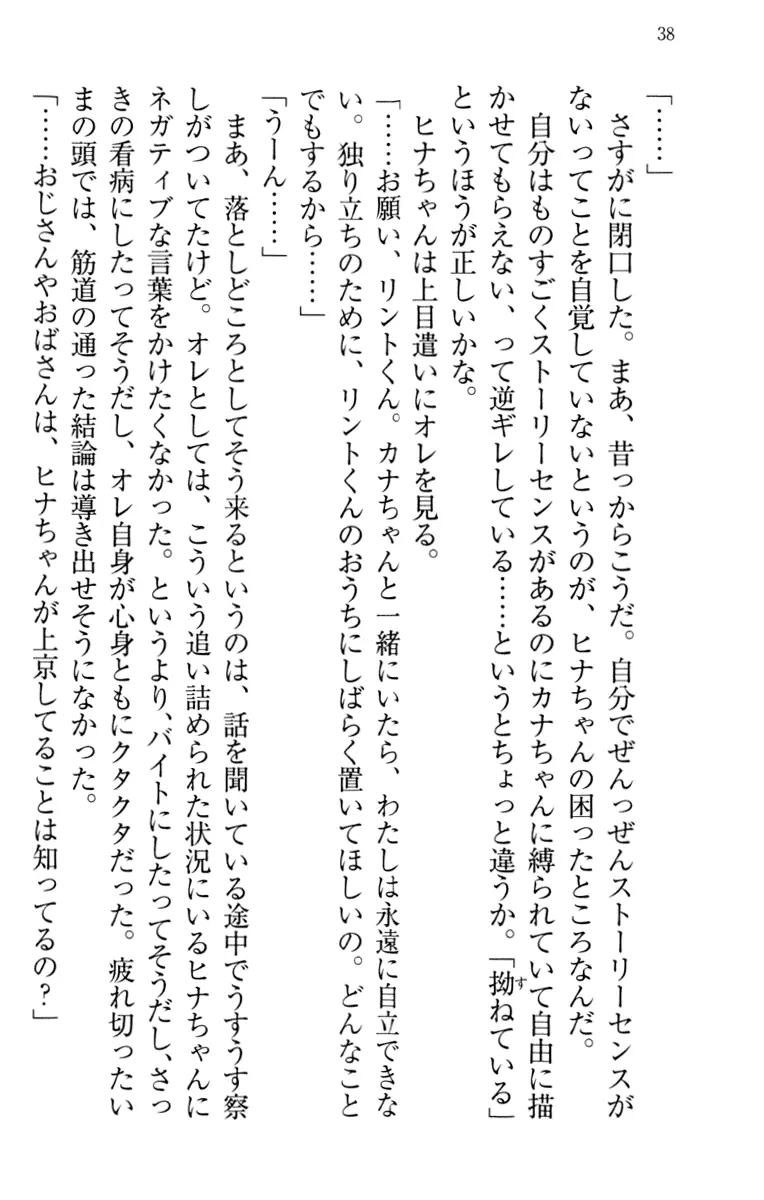 38
「……」
さすがに閉口した。まあ、昔っからこうだ。自分でぜんっぜんストーリーセンスが
ないってことを自覚していないというのが、ヒナちゃんの困ったところなんだ。
自分はものすごくストーリーセンスがあるのにカナちゃんに縛られていて自由に描
かせてもらえない、って逆ギレしている……というとちょっと違うか。「拗ねている」
というほうが正しいかな。
ヒナちゃんは上目遣いにオレを見る。
「……お願い、リントくん。カナちゃんと一緒にいたら、わたしは永遠に自立できな
い。独り立ちのために、リントくんのおうちにしばらく置いてほしいの。どんなこと
でもするから……」
「うーん……」
まあ、落としどころとしてそう来るというのは、話を聞いている途中でうすうす察
しがついてたけど。オレとしては、こういう追い詰められた状況にいるヒナちゃんに
ネガティブな言葉をかけたくなかった。というより、バイトにしたってそうだし、さっ
きの看病にしたってそうだし、オレ自身が心身ともにクタクタだった。疲れ切ったい
まの頭では、筋道の通った結論は導き出せそうになかった。
「……おじさんやおばさんは、ヒナちゃんが上京してることは知ってるの？」